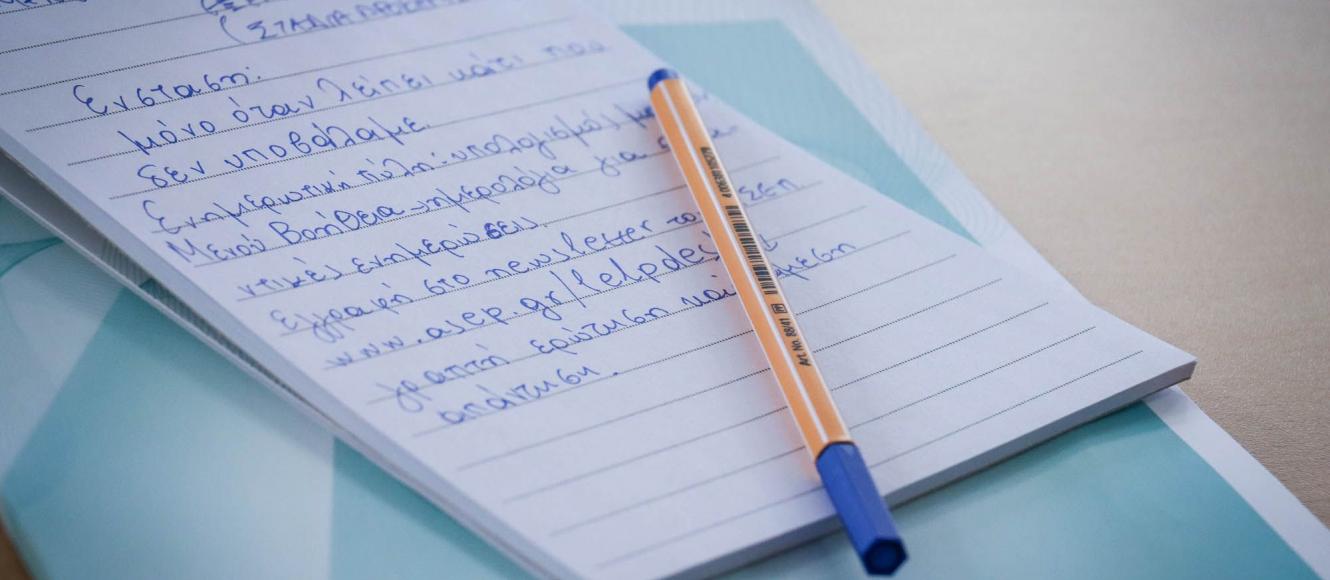 (ΣΤΑΔΙΑ
Ενσταση:
μόνο όταν λείπει κάτι που
δεν υποβάλαμε.
Ενημερωτική πύλη: υπολογισμός
Μενού Βοήθεια → ημερολόγια για
ντικές ενημερώσεις
εγγραφή στο newsletter του ΑΣΕΠ
www.asep.gr/helpdesk
γραπτή ερώτηση και άμεση
απάντηση.
Art. No. 88/41